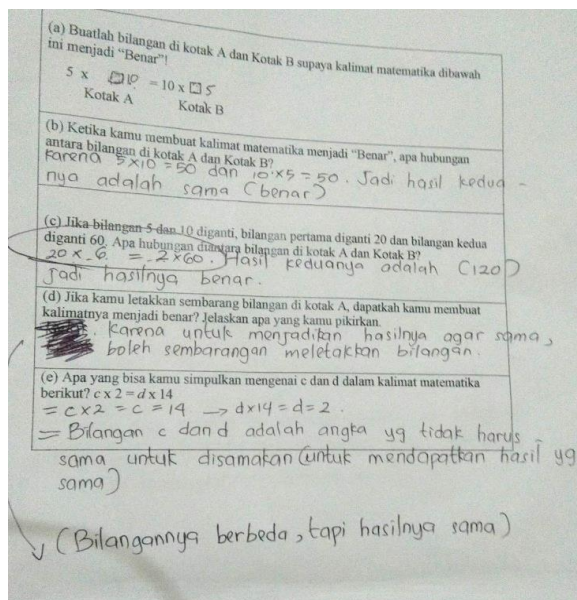 (a) Buatlah bilangan di kotak A dan Kotak B supaya kalimat matematika dibawah
ini menjadi “Benar”!
5 x □ 10 = 10 x □ 5
Kotak A Kotak B
(b) Ketika kamu membuat kalimat matematika menjadi “Benar”, apa hubungan
antara bilangan di kotak A dan Kotak B?
Karena 5x10 = 50 dan 10 x 5 = 50. Jadi hasil kedua -
nya adalah sama (benar)
(c) Jika bilangan 5 dan 10 diganti, bilangan pertama diganti 20 dan bilangan kedua
diganti 60. Apa hubungan diantara bilangan di kotak A dan Kotak B?
20 x 6 = 2 x 60. Hasil keduanya adalah (120)
Jadi hasilnya benar.
(d) Jika kamu letakkan sembarang bilangan di kotak A, dapatkah kamu membuat
kalimatnya menjadi benar? Jelaskan apa yang kamu pikirkan.
Karena untuk menjadikan hasilnya agar sama,
boleh sembarangan meletakkan bilangan.
(e) Apa yang bisa kamu simpulkan mengenai c dan d dalam kalimat matematika
berikut? c x 2 = d x 14
= c x 2 = c = 14 → d x 14 = d = 2.
= Bilangan c dan d adalah angka yg tidak harus
sama untuk disamakan (untuk mendapatkan hasil yg
sama)
(Bilangannya berbeda, tapi hasilnya sama)